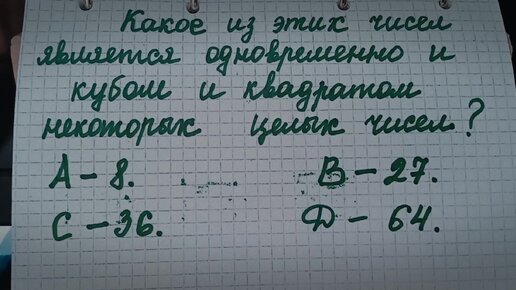 Какое из этих чисел
является одновременно и
кубом и квадратом
некоторых целых чисел?
А – 8. В – 27.
С – 36. D – 64.